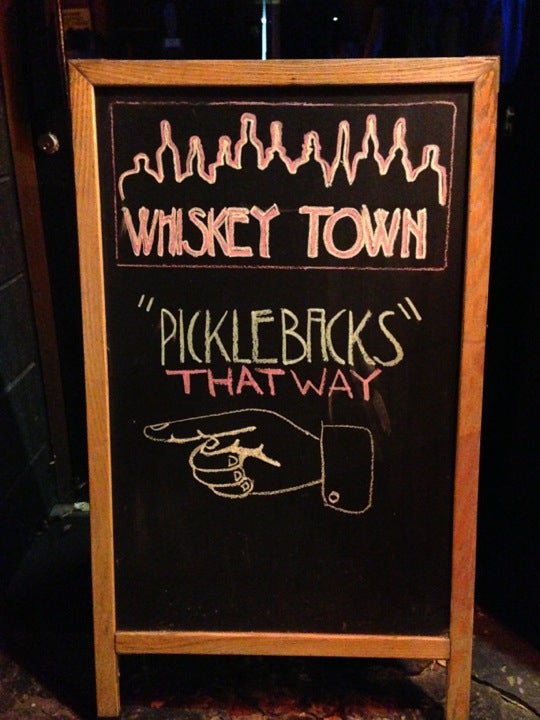 WHISKEY TOWN
"PICKLEBACKS"
THAT WAY